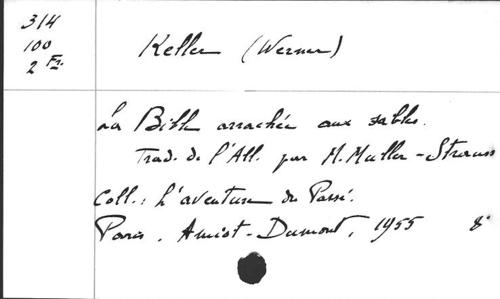 314
100
2 Fr.
Keller (Werner)
La Bible arrachée aux sables.
Trad. de l'All. par M. Muller-Strauss
Coll.: L'aventure du Passé.
Paris, Amiot-Dumont, 1955 8°